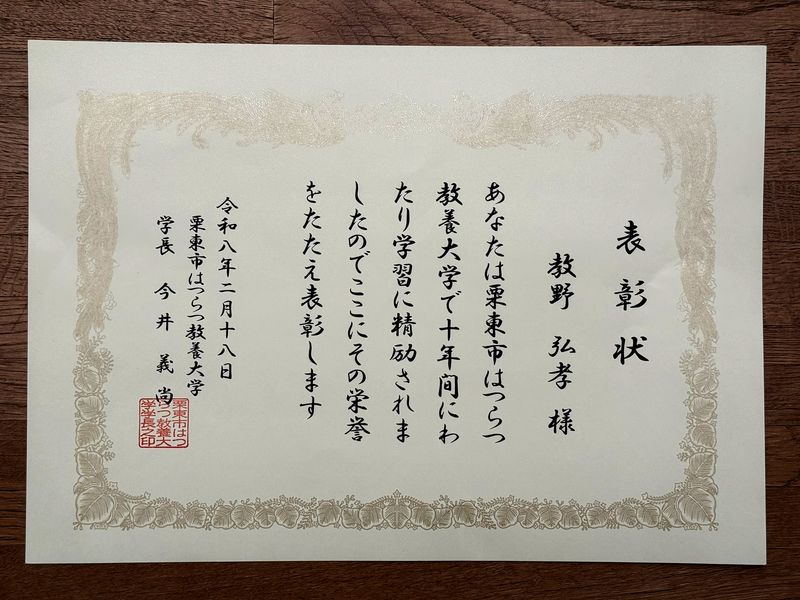 表彰状
教野 弘孝 様
あなたは栗東市はつらつ
教養大学で十年間にわ
たり学習に精励されま
したのでここにその栄誉
をたたえ表彰します
令和八年二月十八日
栗東市はつらつ教養大学
学長 今井 義尚
栗東市はつ
らつ教養大
学学長之印